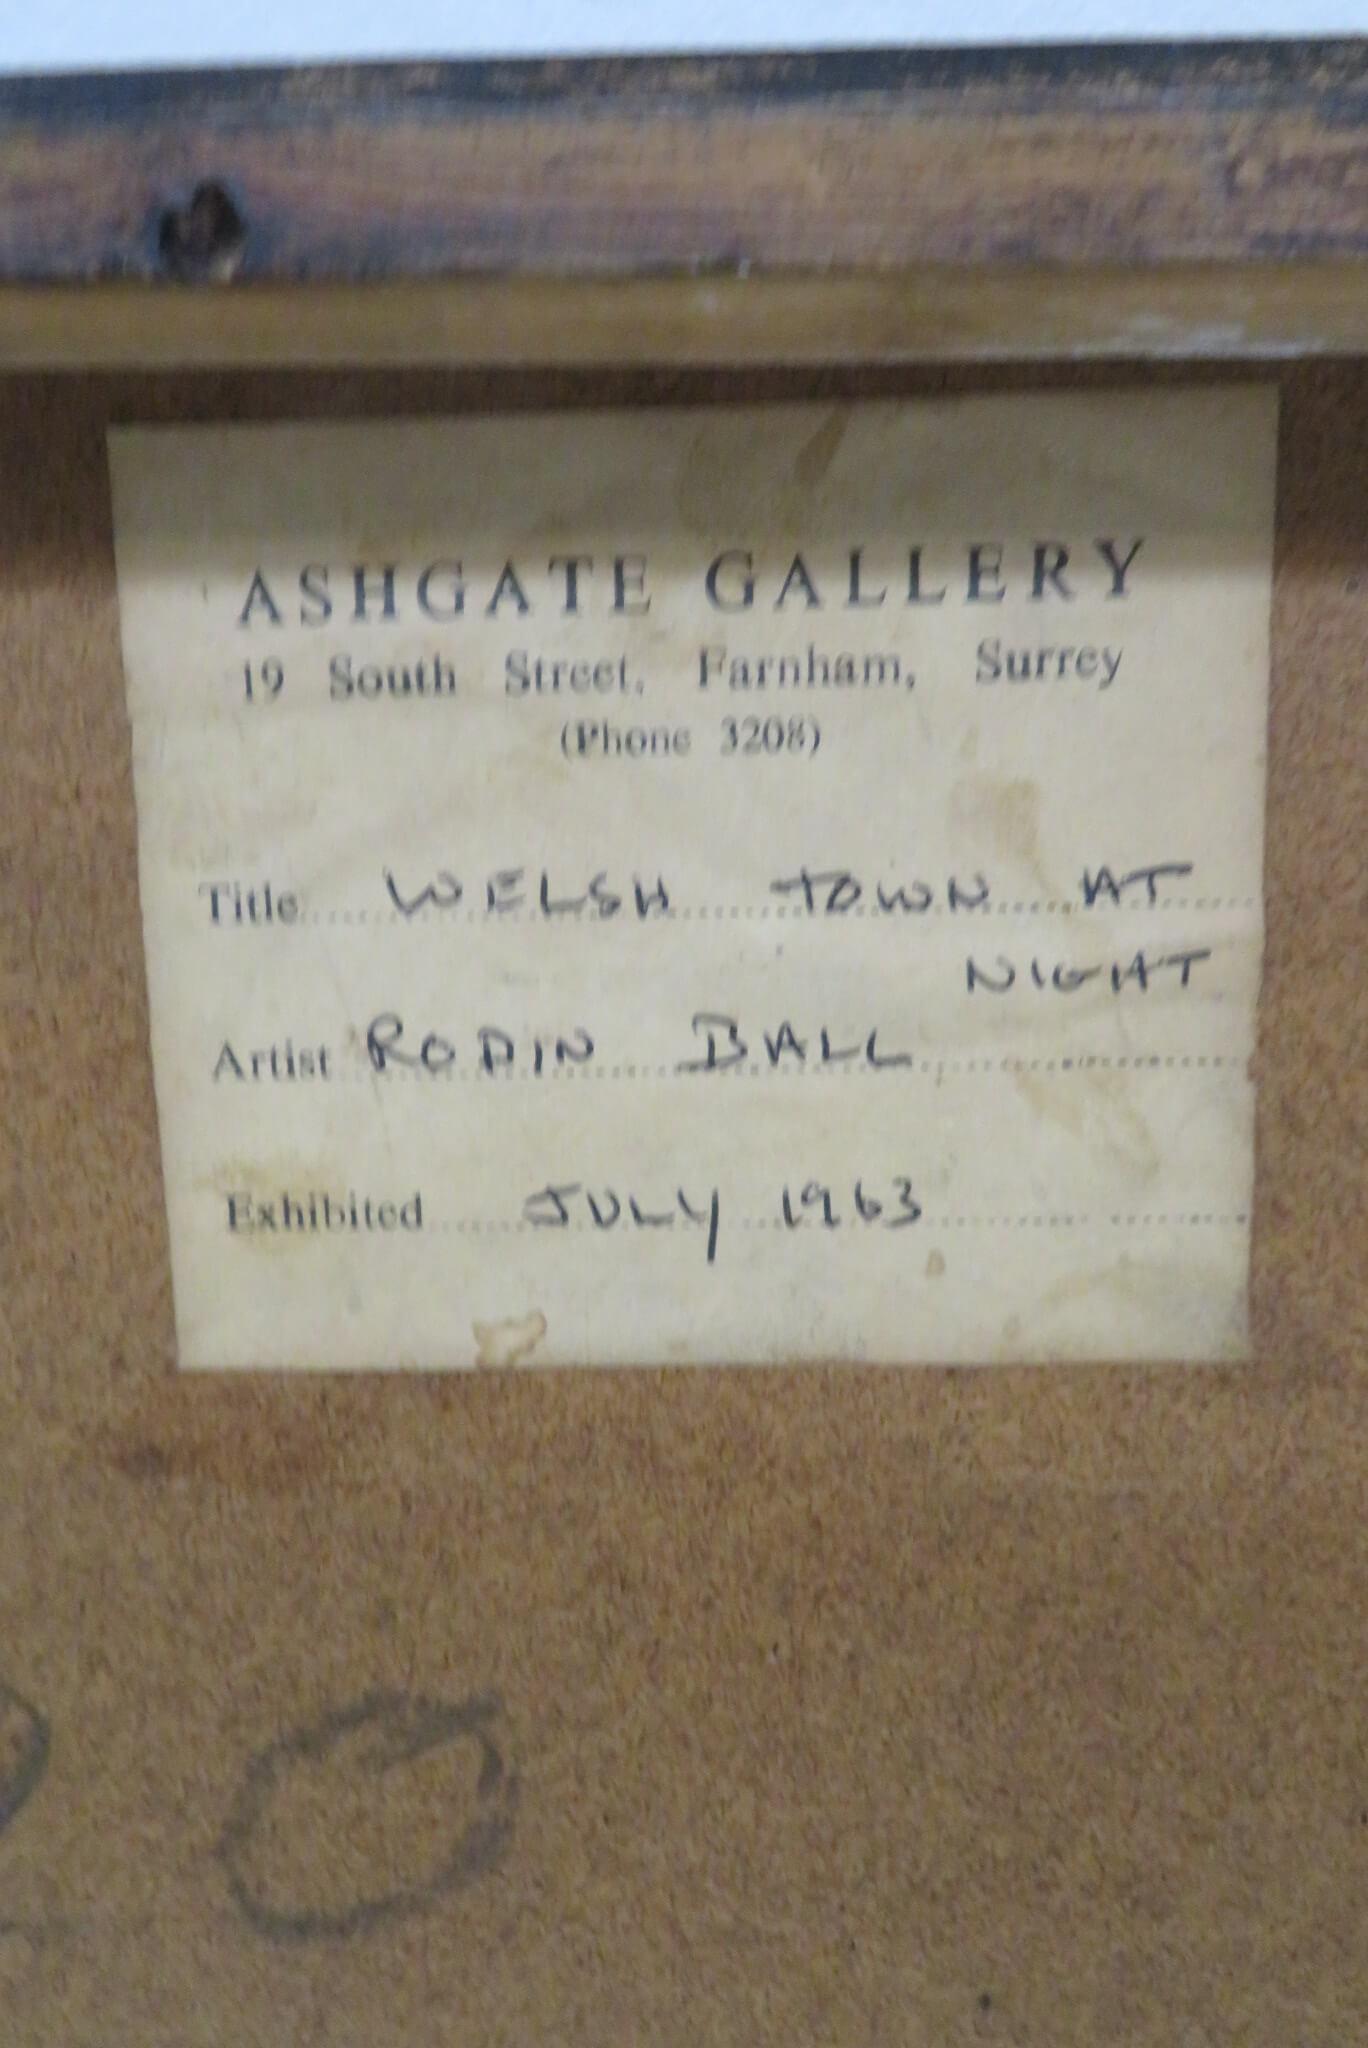 ASHGATE GALLERY
19 South Street, Farnham, Surrey
(Phone 3208)
Title WELSH TOWN AT
NIGHT
Artist ROBIN BALL
Exhibited JULY 1963